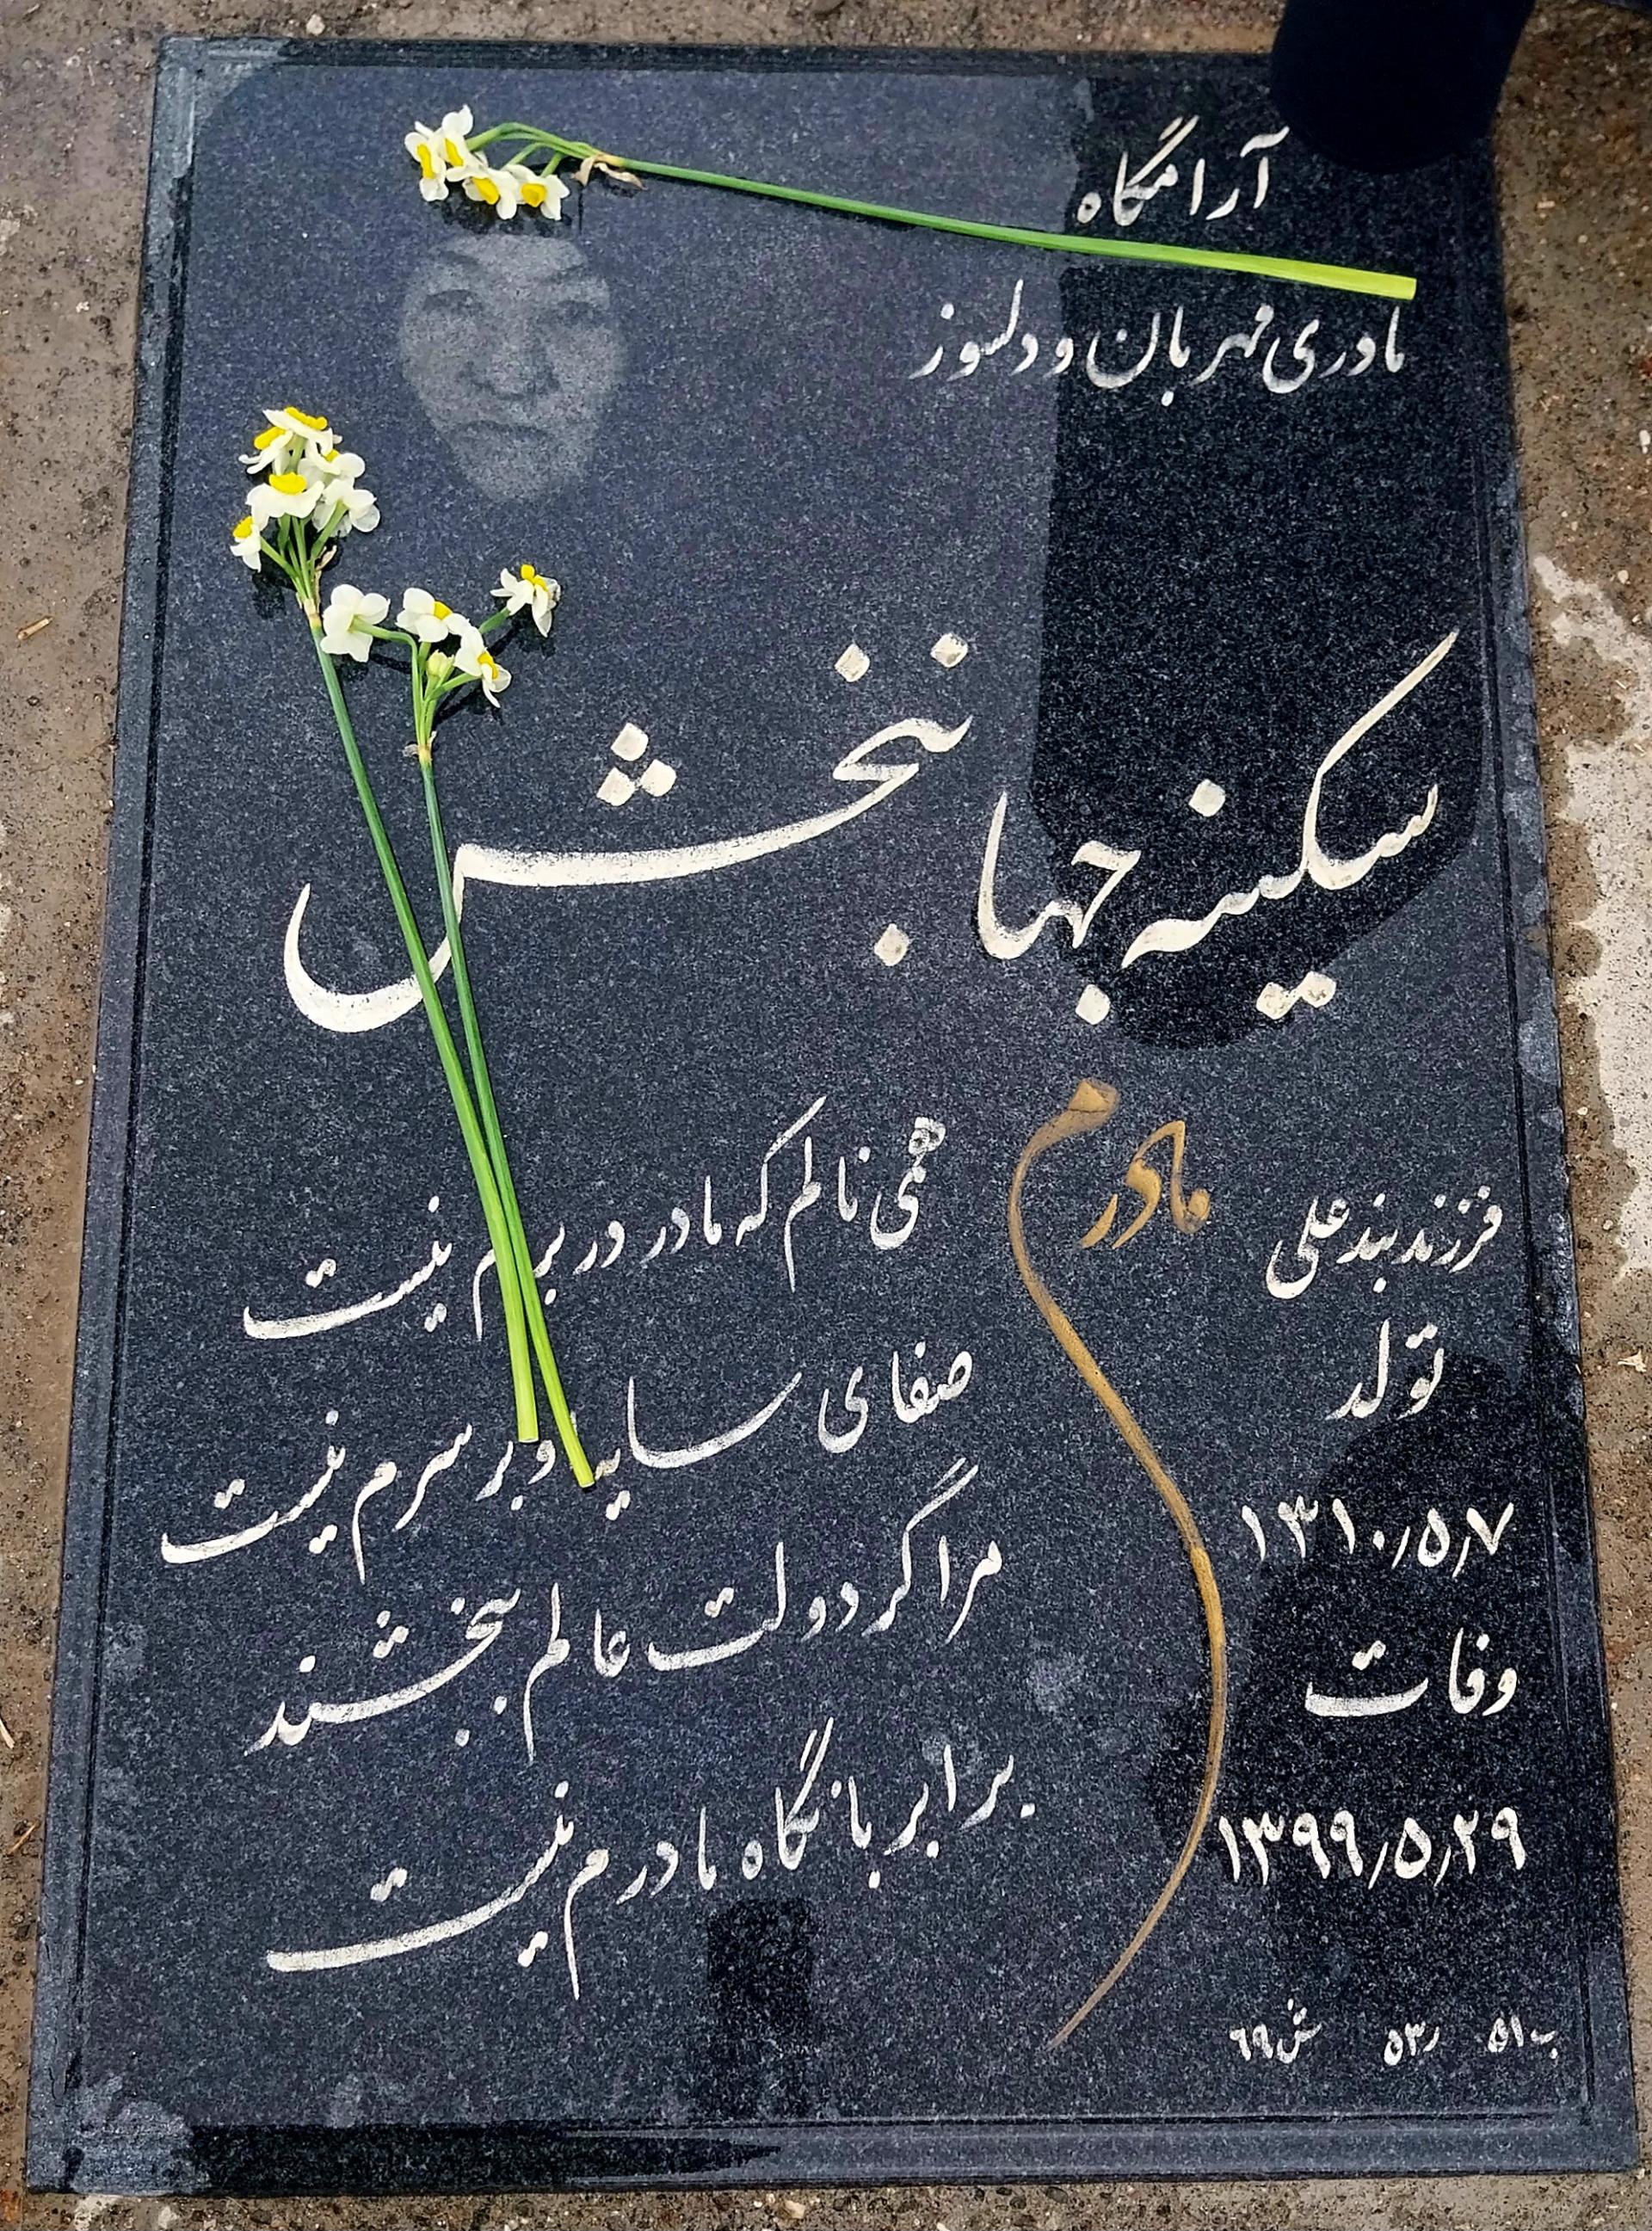 آرامگاه
مادری مهربان و دلسوز
سکینه جهانبخش
مادرم
فرزند بندعلی
تولد
۱۳۱۰/۵/۷
وفات
۱۳۹۹/۵/۲۹
همی نالم که مادر در برم نیست
صفای سایه او بر سرم نیست
مرا گر دولت عالم ببخشند
برابر با نگاه مادرم نیست
ب۵۱ ر۵۳ ش۶۹